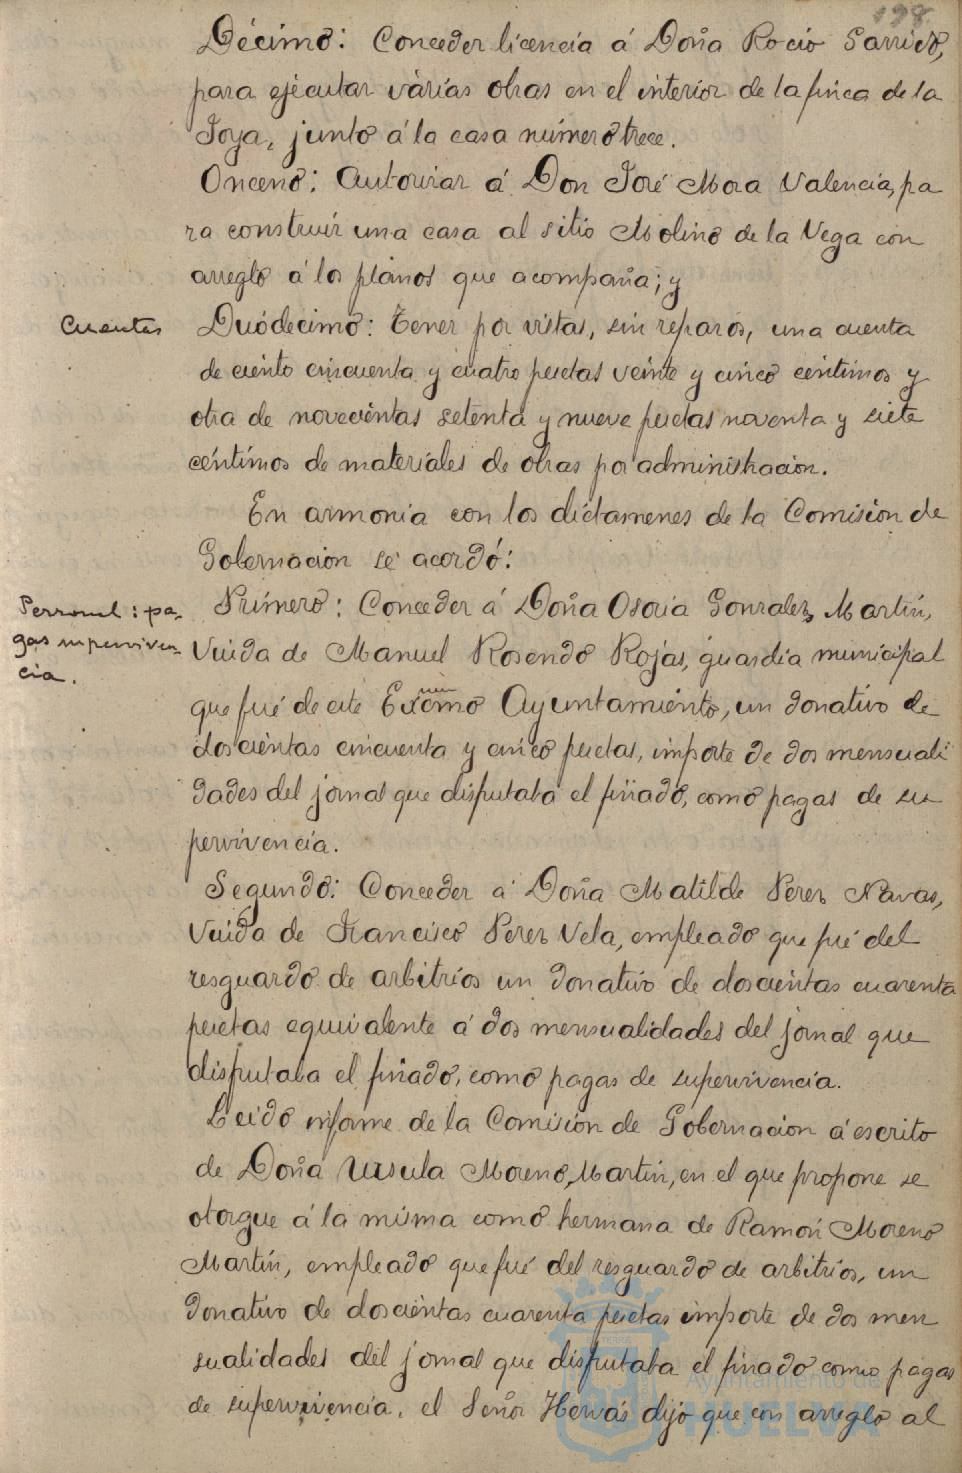 198.
Décimo: Conceder licencia á Doña Rocio Garrido,
para ejecutar várias obras en el interior de la finca de la
Joya, junto á la casa número trece.
Onceno: Autorizar á Don José Mora Valencia, pa
ra construir una casa al sitio Molino de la Vega con
arreglo á los planos que acompaña; y
Cuentas
Duódecimo: Tener por vistas, sin reparos, una cuenta
de ciento cincuenta y cuatro pesetas veinte y cinco céntimos y
otra de novecientas setenta y nueve pesetas noventa y siete
céntimos de materiales de obras por administracion.
En armonia con los dictamenes de la Comision de
Gobernacion se acordó:
Personal: pa-
gas superviven-
cia.
Primero: Conceder á Doña Osoria Gonzalez Martin,
Viuda de Manuel Rosendo Rojas, guardia municipal
que fué de este Excmo Ayuntamiento, un donativo de
doscientas cincuenta y cinco pesetas, importe de dos mensuali
dades del jornal que disfrutaba el finado, como pagas de su
pervivencia.
Segundo: Conceder á Doña Matilde Perez Navas,
Viuda de Francisco Perez Vela, empleado que fué del
resguardo de arbitrios un donativo de doscientas cuarenta
pesetas equivalente á dos mensualidades del jornal que
disfrutaba el finado, como pagas de supervivencia.
Leido informe de la Comision de Gobernacion á escrito
de Doña Ursula Moreno Martin, en el que propone se
otorgue á la misma como hermana de Ramón Moreno
Martin, empleado que fué del resguardo de arbitrios, un
donativo de doscientas cuarenta pesetas importe de dos men
sualidades del jornal que disfrutaba el finado como pagas
de supervivencia, el Señor Hervás dijo que con arreglo al
Ayuntamiento de
HUELVA